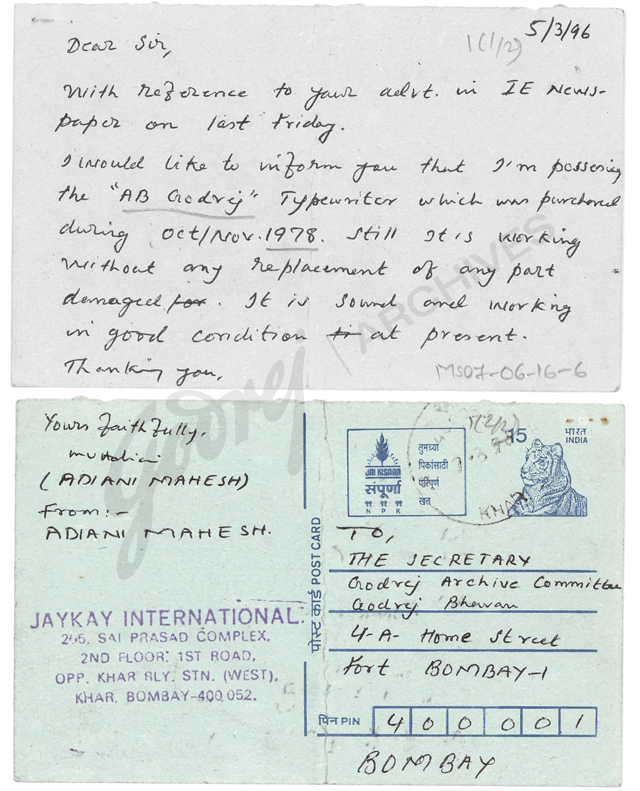 1(1/2)
5/3/96
Dear Sir,
With reference to your advt. in IE News-
paper on last Friday.
I would like to inform you that I'm possesing
the "AB Godrej" Typewriter which was purchased
during Oct/Nov. 1978. Still It is working
without any replacement of any part
damaged for. It is Sound and working
in good condition at present.
Thanking you,
Godrej | ARCHIVES
MS07-06-16-6
Yours faithfully,
(ADIANI MAHESH)
From:-
ADIANI MAHESH.
JAYKAY INTERNATIONAL.
205, SAI PRASAD COMPLEX,
2ND FLOOR, 1ST ROAD,
OPP. KHAR RLY. STN. (WEST),
KHAR, BOMBAY-400 052.
पोस्ट कार्ड POST CARD
JAI KISAAN
संपूर्णा
१९ १९ १९
N P K
तुमच्या
पिकांसाठी
परिपूर्ण
खत
(2/2)
KHAR
15
भारत
INDIA
TO,
THE SECRETARY
Godrej Archive Committee
Godrej Bhavan
4-A- Home Street
Fort BOMBAY-1
पिन PIN 400001
BOMBAY